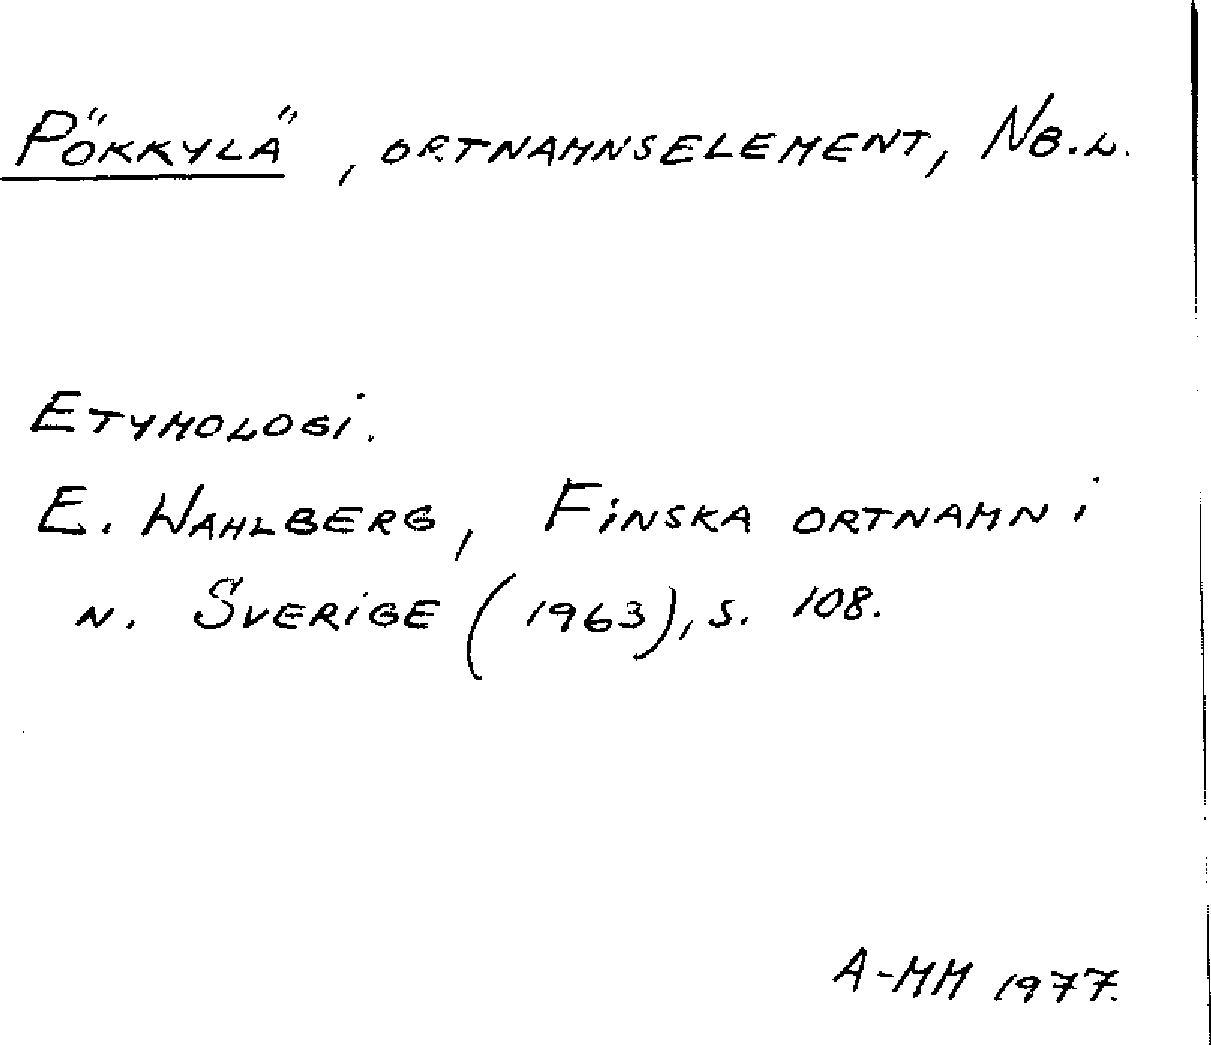 Pökkylä, ortnamnselement, Nb.l.
Etymologi.
E. Wahlberg, Finska ortnamn i
n. Sverige (1963), s. 108.
A-MM 1977.